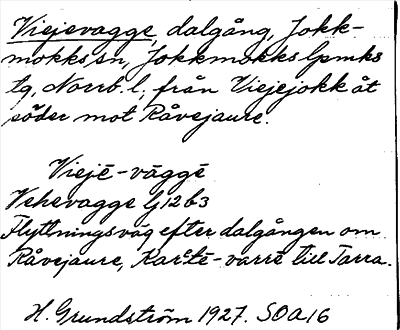 Viejevagge, dalgång, Jokk-
mokks sn, Jokkmokks lpmks
tg, Norrb. l., från Viejejokk åt
söder mot Råvejaure.
Viejē-vāggē
Vehevagge Lj12b3
Flyttningsväg efter dalgången om
Råvejaure, Kartē-varrē till Tarra.
H. Grundström 1927. SOA16